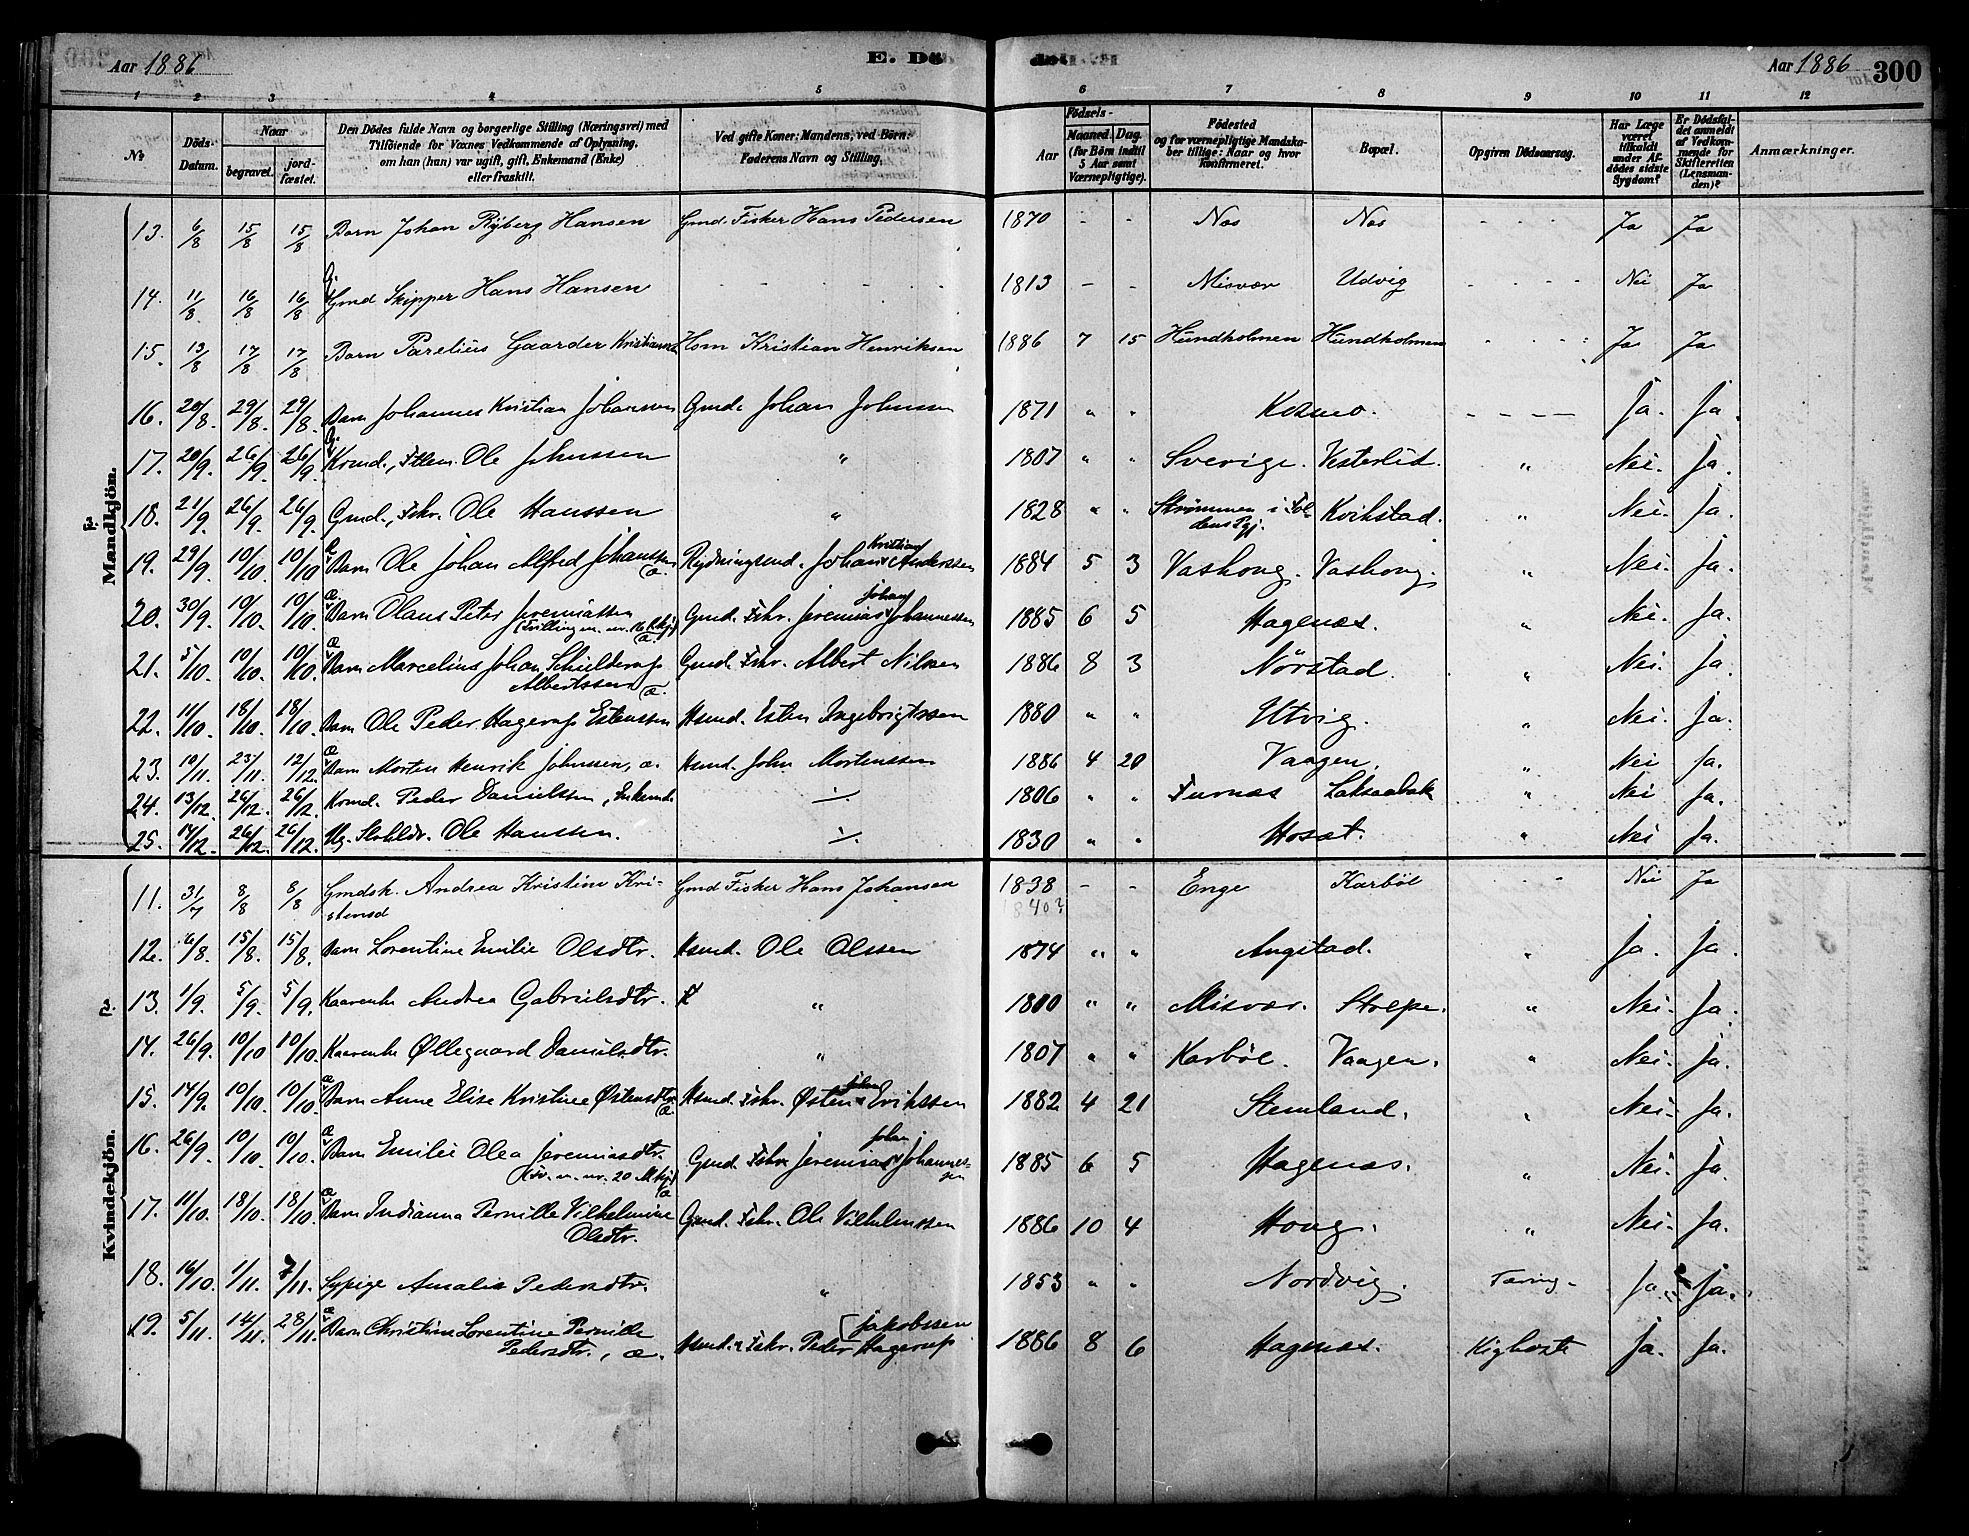 Aar 1886 E. Dö de. Aar 1886 300
1 2 3 4 5 6 7 8 9 10 11 12
No Döds-Datum. Naar begravet. jordfæstet. Den Dödes fulde Navn og borgerlige Stilling (Næringsvei) med Tilföiende for Voxnes Vedkommende af Oplysning, om han (hun) var ugift, gift, Enkemand (Enke) eller fraskilt. Ved gifte Koner: Mandens, ved Börn: Faderens Navn og Stilling. Aar Födsels- Maaned. Dag. (for Börn indtil 5 Aar samt Værnepligtige). Födested og for værnepligtige Mandskaber tillige: Naar og hvor konfirmeret. Bopæl. Opgiven Dödsaarsag. Har Læge været tilkaldt under Afdödes sidste Sygdom? Er Dödsfaldet anmeldt af Vedkommende for Skifteretten (Lensmanden)? Anmærkninger.
Mandkjön.
13. 6/8 15/8 15/8 Barn Johan Ryberg Hansen Gmd. Fisker Hans Pedersen 1870 - - Nos Nos - - - - Ja Ja
14. 11/8 16/8 16/8 Gmd Skipper Hans Hansen - - - - 1813 - - Misvær Udvig - - - - Nei Ja
15. 13/8 17/8 17/8 Barn Parelius Gaarder Kristians. Hom Kristian Henriksen 1886 7 15 Hundholmen Hundholmen - - - Ja Ja
16. 20/8. 29/8. 29/8. Barn Johannes Kristian Johansen Gmd. Johan Johnsen 1871 " " Kosmo. - - - - Ja. Ja.
17. 20/9. 26/9. 26/9. Kvmd., Ole Johnssen " 1807 " " Sverige. Vesterlid. " Nei. Ja.
18. 21/9. 26/9. 26/9. Gmd., Fskr. Ole Hanssen " 1828 " " Strømmen i Foldens Pgj. Kvikstad. " Nei. Ja.
19. 29/9. 10/10. 10/10 Barn Ole Johan Alfred Johanssen Rydningsmd. Johan Kristian Anderssen 1884 5 3 Vashoug. Vashoug. " Nei. Ja.
20. 30/9. 10/10. 10/10. Barn Olaus Peter Jeremiassen (Tvilling m. nr. 16 Kvkj) Gmd. Fskr. Jeremias Johan Johannessen 1885 6 5 Hagenæs. " Nei. Ja.
21. 5/10. 10/10. 10/10. Barn Marcelius Johan Schielderup Albertssen Gmd. Fskr. Albert Nilsen 1886 8 3 Nørstad. " Nei. Ja.
22. 11/10. 18/10. 18/10. Barn Ole Peder Hagerup Estenssen Hsmd. Esten Ingebrigtssen 1880 " " Utvig. " Nei. Ja.
23. 10/11. 23/11. 12/12. Barn Morten Henrik Johnssen, a. Hsmd. John Mortenssen 1886 4 20 Vaagen. " Nei Ja.
24. 13/12. 26/12. 26/12. Kvmd. Peder Danielssen, Enkemd. ./. 1806 " " Furnæs Laksaabak " Nei Ja.
25. 14/12. 26/12. 26/12. Ug. Ole Hanssen. ./. 1830 " " Hosæt. " Nei Ja.
Kvindekjön.
11. 31/7 8/8 8/8 Gmdsk. Andrea Kristine Kristensd Gmd Fisker Hans Johansen 1838 1840? - - Enge Karbøl - - - Nei Ja
12. 6/8. 15/8. 15/8. Barn Lorentine Emilie Olsdtr. Hsmd. Ole Olssen 1874 " " Angstad. " Ja. Ja.
13. 1/9. 5/9. 5/9. Kaarenke Andrea Gabrielsdtr. " 1800 " " Misvær. Stolpe. " Nei. Ja.
14. 26/9. 10/10 10/10. Kaarenke Øllegaard Danielsdtr. " 1807 " " Karbøl. Vaagen. " Nei. Ja.
15. 14/9. 10/10. 10/10. Barn Anne Elise Kristine Østensdtr. Hsmd. Fskr. Østen Johan Erikssen 1882 4 21 Stemland. " Nei. Ja.
16. 26/9. 10/10. 10/10. Barn Emilie Olea Jeremiasdtr. (Tv. m. nr. 20 Mkj) Gmd. Fskr. Jeremias Johan Johannessen 1885 6 5 Hagenæs. " Nei. Ja.
17. 11/10. 18/10. 18/10. Barn Indianna Pernille Vilhelmine Olsdtr. Gmd. Fskr. Ole Vilhelmssen 1886 10 4 Houg. " Nei. Ja.
18. 16/10. 1/11. 7/11. Sypige Amalia Pedersdtr. " 1853 " " Nordvig. Tæring. Ja. Ja.
19. 5/11. 14/11. 28/11. Barn Christine Lorentine Pernille Pedersdtr., a. Hsmd. Fskr. Peder Hagerup Jakobssen 1886 8 6 Hagenæs. Kighoste Ja. Ja.